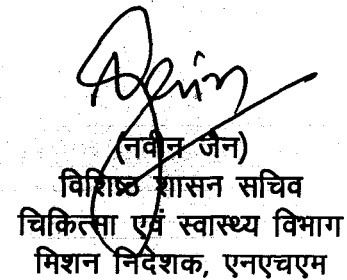 (नवीन जैन)
विशिष्ठ शासन सचिव
चिकित्सा एवं स्वास्थ्य विभाग
मिशन निदेशक, एनएचएम